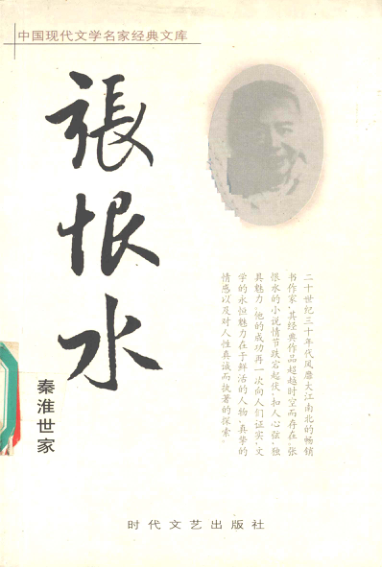 中国现代文学名家经典文库
張恨水
秦淮世家
二十世纪三十年代风靡大江南北的畅销
书作家，其经典作品超越时空而存在。张
恨水的小说情节跌宕起伏，扣人心弦，独
具魅力，他的成功再一次向人们证实，文
学的永恒魅力在于鲜活的人物，真挚的
情感以及对人性真诚而执著的探索。
时代文艺出版社